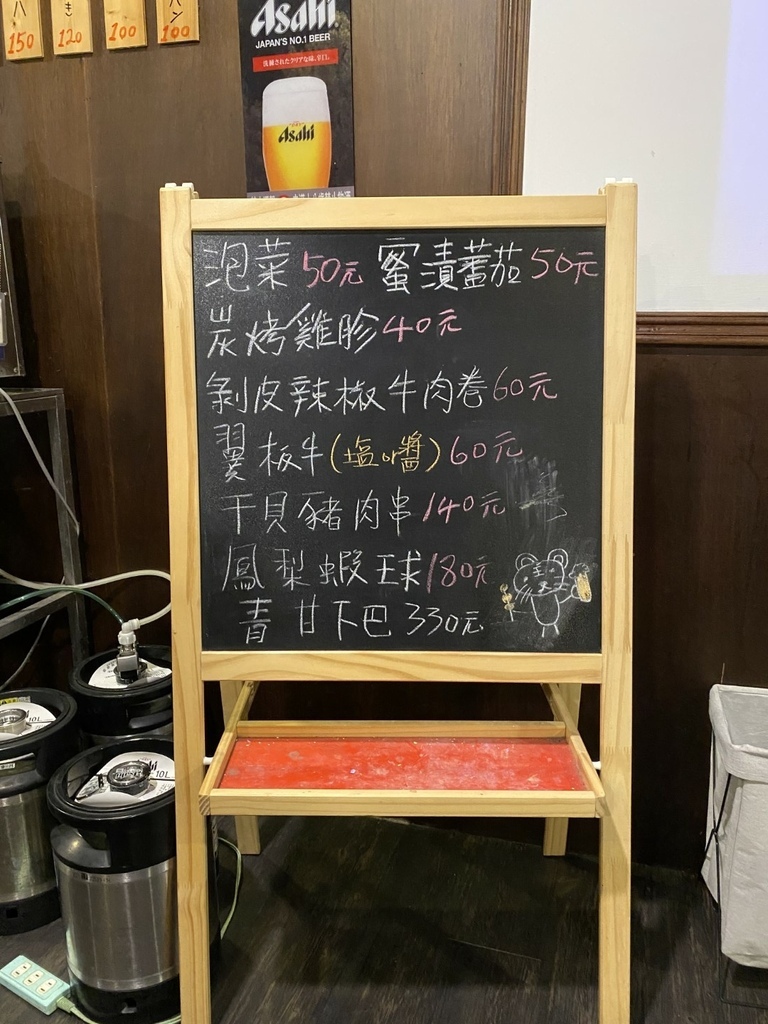 150
120
100
ハン
100
Asahi
JAPAN'S NO.1 BEER
洗練されたクリアな味、辛口。
Asahi
泡菜50元 蜜漬蕃茄50元
炭烤雞胗40元
剝皮辣椒牛肉卷60元
翼板牛(塩or醬)60元
干貝豬肉串140元
鳳梨蝦球180元
青甘下巴330元
10L
10L